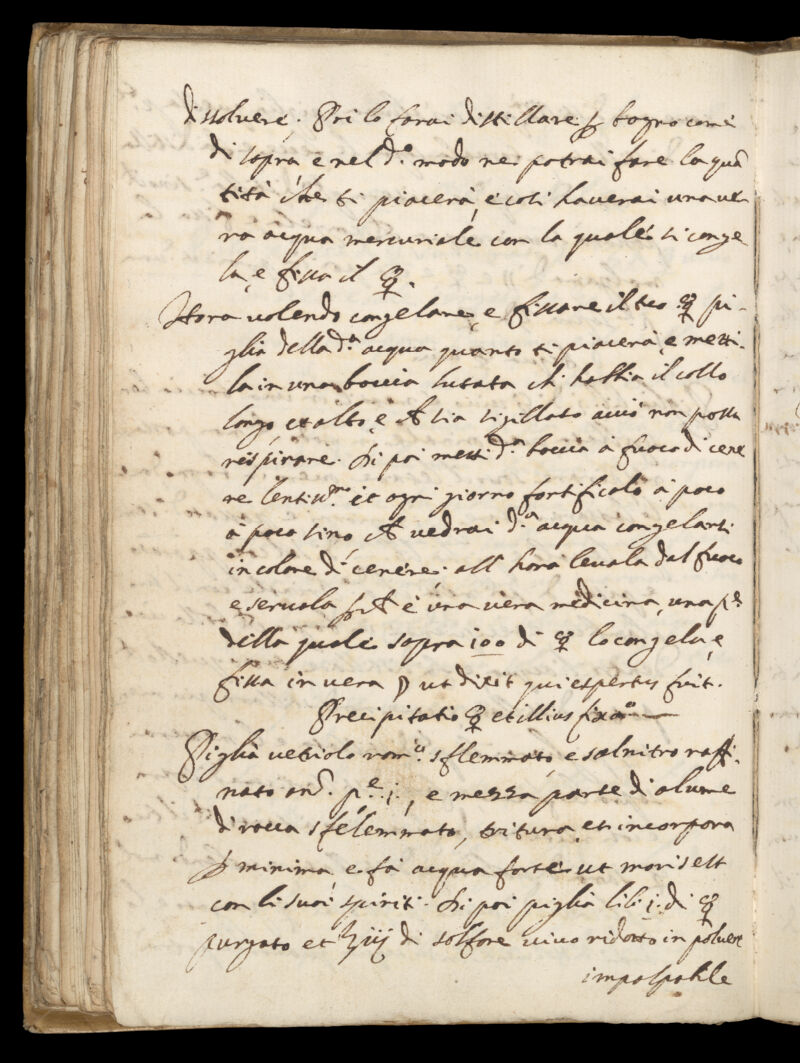 dissolvere. Poi lo farai distillare ꝑ bagno come
di sopra e nel d.º modo ne potrai fare la quã
tità che ti piacerà, e cosi haverai una ve
ra acqua mercuriale con la quale si conge
la, e fissa il ☿.
Hora volendo congelare, e fissare il tuo ☿ pi-
glia della d.ª acqua quanto ti piacerà, e metti-
la in una boccia lutata ch habbia il collo
longo, et alto, e ch sia sigillato acciò non possa
respirare. Di poi metti d.ª boccia à fuoco di cene
re lentiss.mo et ogni giorno fortificalo à poco
à poco sino ch vedrai d.ª acqua congelarsi
in colore di cenere. all' hora levala dal fuoco
e servala ꝑ ch è una vera medicina, una p.e
della quale sopra 100 di ☿ lo congela, e
fissa in vera ☽ ut dixit qui expertus fuit.
Precipitatio ☿ et illius fixa.º
Piglia vetriolo rom.º sflemmato, e salnitro raffi-
nato anᵃ. p.e j., e mezza parte di alume
di rocca sfelemmato, tritura et incorpora
ꝑ minima e fa acqua forte ut moris est
con li suoi spiriti. Di poi piglia lib. j. di ☿
purgato et ℥ iij di solfore vivo ridotto in polvere
impalpabile